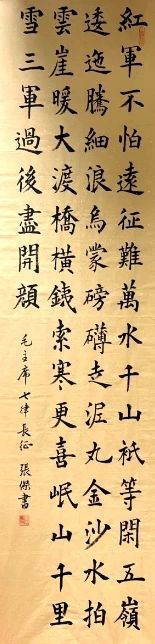 紅軍不怕遠征難萬水千山祇等閑五嶺
逶迤騰細浪烏蒙磅礴走泥丸金沙水拍
雲崖暖大渡橋橫銕索寒更喜岷山千里
雪三軍過後盡開顔
毛主席七律長征 張傑書